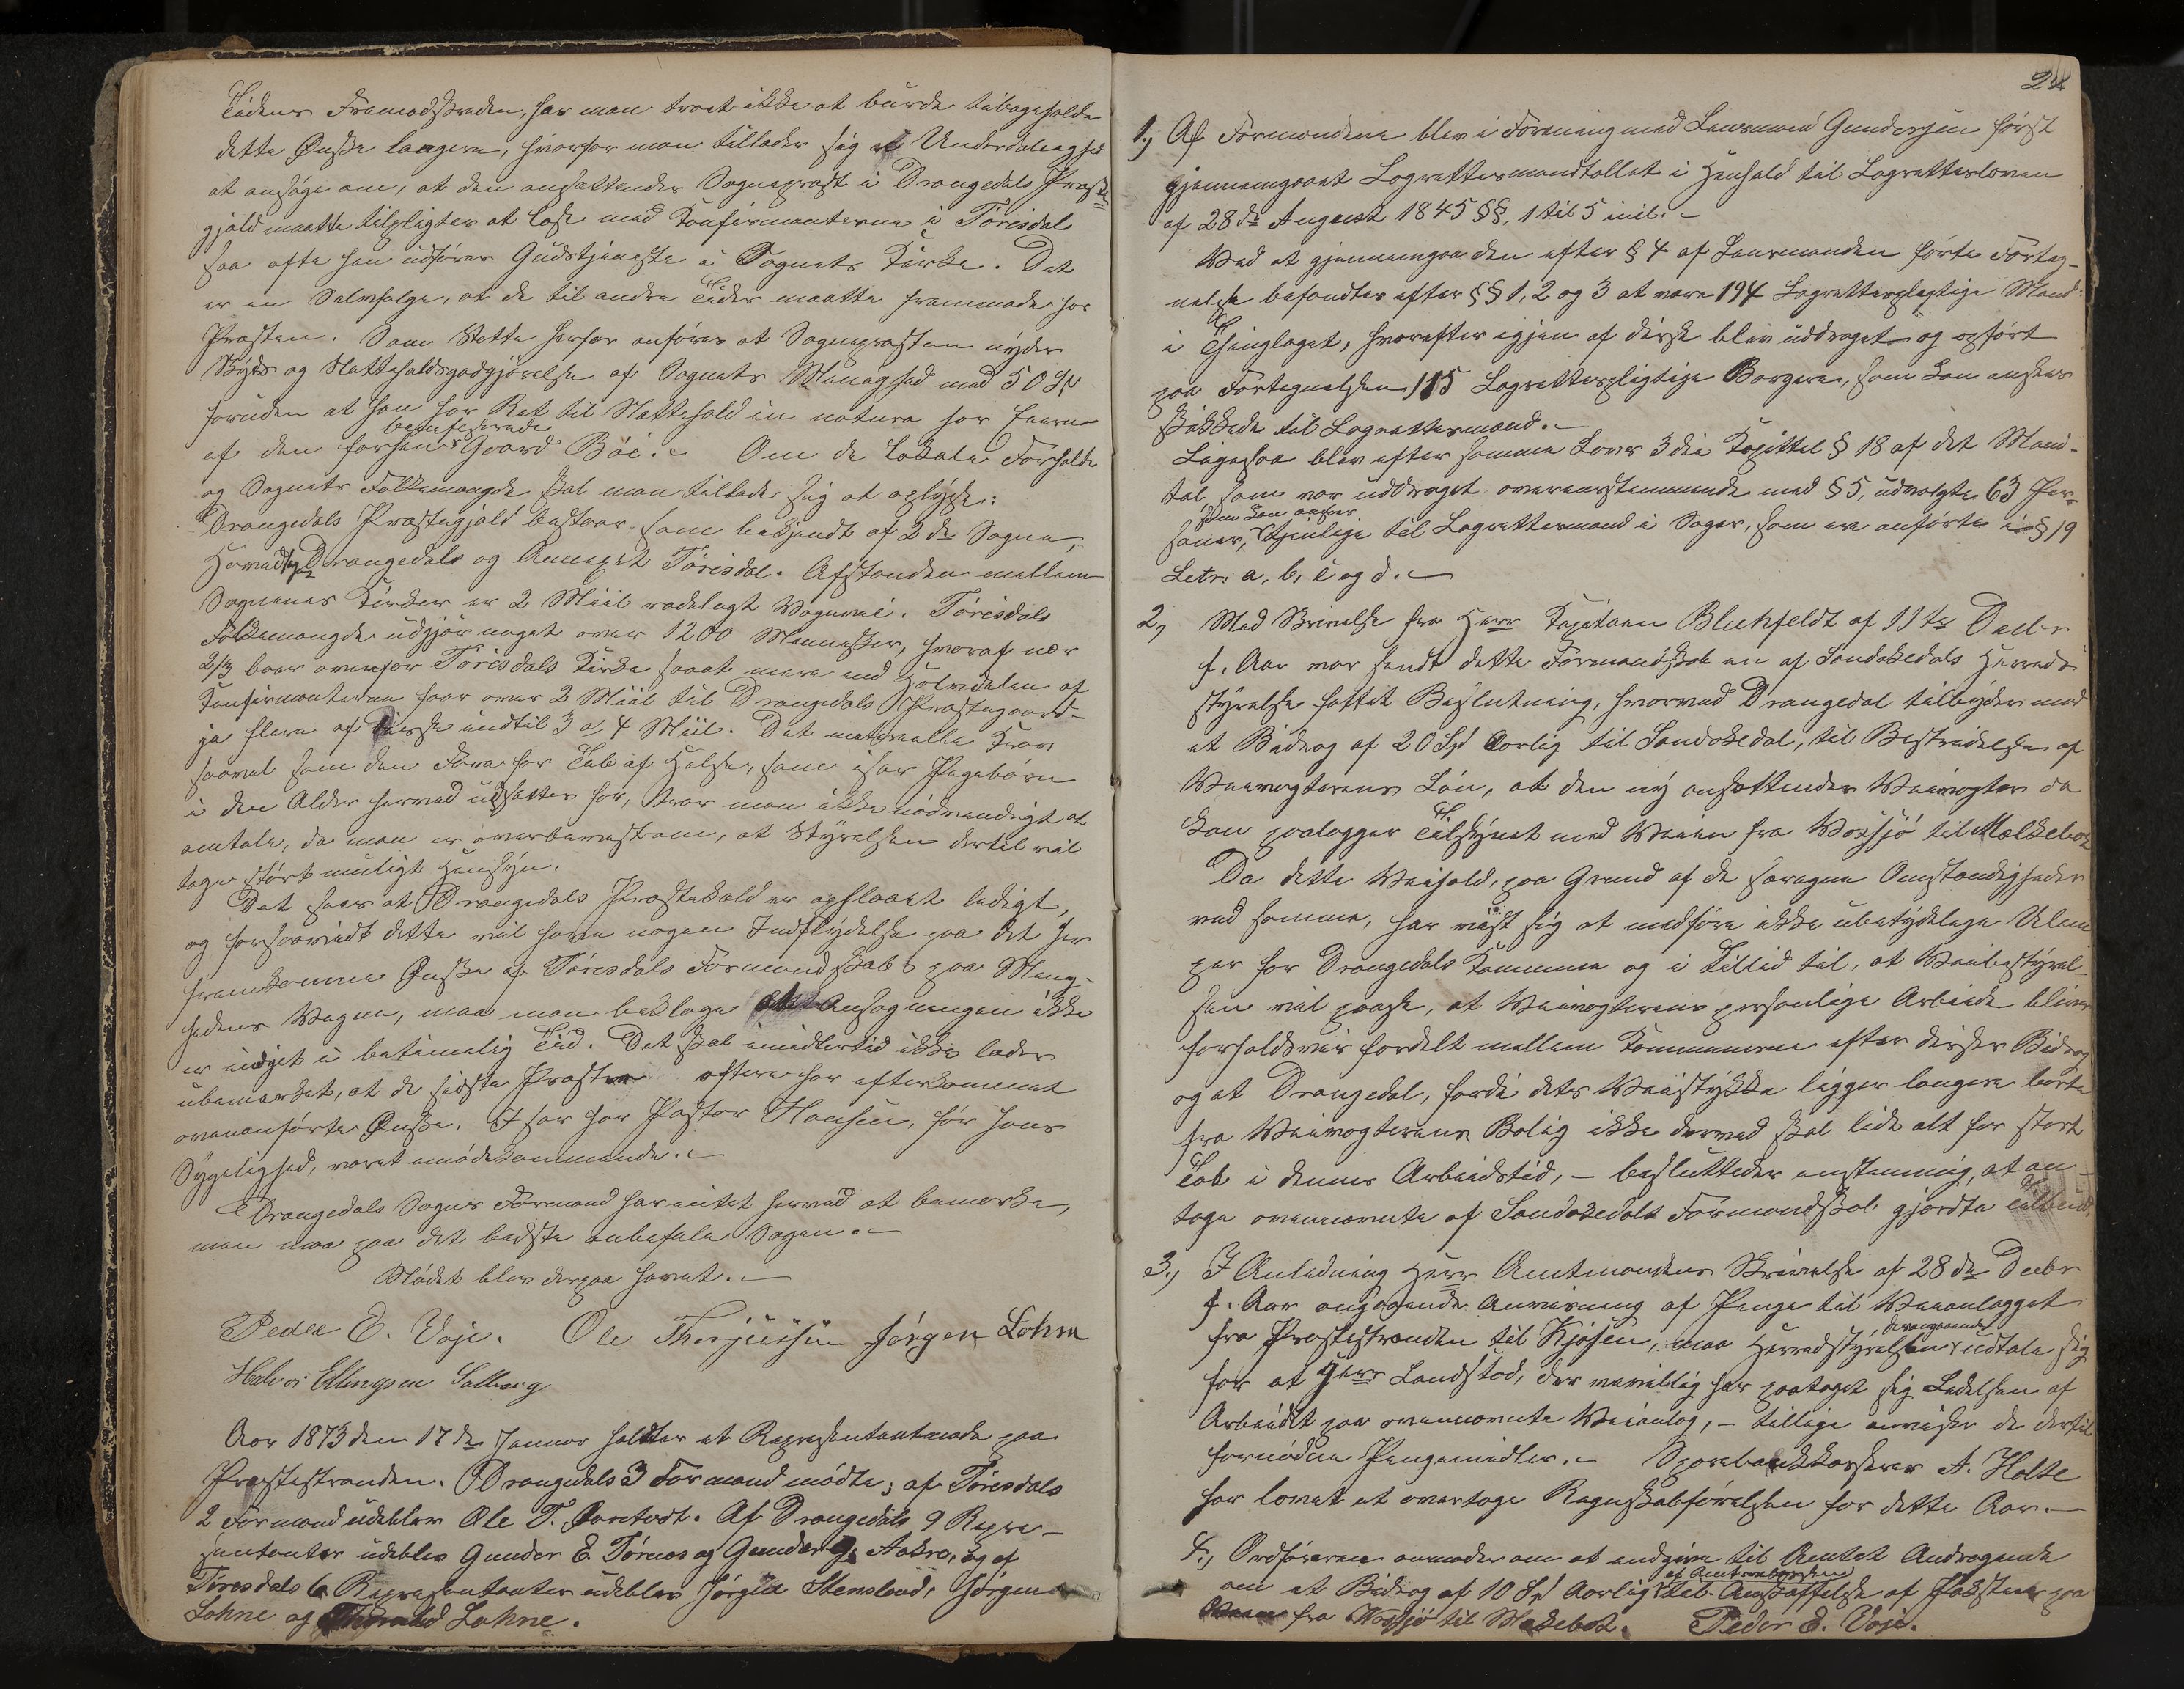 Tidens Fremadskriden, har man troet ikke at burde tilbageholde
dette Ønske længere, hvorfor man tillader sig at Underdanigst
at ansøge om, at den ansættendes Sognepræst i Drangedals Præste
gjeld maatte tilpligtes at læse med Konfirmanterne i Tørisdal
saa ofte han udfører Gudstjeneste i Sognets Kirke. Det
er en Selvfølge, at de til andre Tider maatte fremmøde hos
Præsten. Som Støtte herfor anføres at Sognepræsten nyder
Skyds og Natteholdsgodtgjørelse af Sognets Menighed med 50 Spd
foruden at han har Ret til Nattehold in natura hos Eierne
beneficerede
af den forhen Gaard Bøe. Om de lokale Forholde
og Sognets Folkemængde skal man tillade sig at oplyse:
Drangedals Præstegjeld bestaar som bekjendt af 2de Sogne,
Hovedsogn Drangedals og Annexet Tørisdal. Afstanden mellem
Sognenes Kirker er 2 Miil rodelagt Vognvei. Tørisdals
Folkemængde udgjør noget over 1200 Mennesker, hvoraf nær
2/3 boer ovenfor Tørisdals Kirke saaat mere end Halvdelen af
Konfirmanterne haar over 2 Miil til Drangedals Præstegaard-
ja flere af disse indtil 3 a 4 Miil. Det materielle Savn
saavel som den Fare for Tab af Helse, som især Pigebørn
i den Alder hermed udsættes for, tror man ikke nødvendigt at
omtale, da man er overbevist om, at Styrelsen dertil vil
tage størst muligt Hensyn.
Det sees at Drangedals Præstekald er opslaaet ledigt,
og forsaavidt dette vil have nogen Indflydelse paa det her
fremkomne Ønske af Tørisdals Formandskab paa Menig-
hedens Vegne, maa man beklage at Ansøgningen ikke
er indgit i betimelig Tid. Det skal imidlertid ikke lades
ubemærket, at de sidste Præster oftere har efterkommet
ovenanførte Ønske. Især har Pastor Hansen, før hans
Sygelighed, været imødekommende.
Drangedals Sogns Formænd har intet herved at bemærke,
men maa paa det bedste anbefale Sagen.
Mødet blev derpaa hævet.
Peder E. Voje. Ole Therjussen Jørgen Lohne
Halvor Ellingsen Solberg
Aar 1873 den 17de Januar holdtes et Repræsentantmøde paa
Præstestranden. Drangedals 3 Formænd mødte; af Tørisdals
2 Formænd udeblev Ole T. Aarstvedt. Af Drangedals 9 Repræ-
sentanter udeblev Gunder E. Tørnes og Gunder G. Aakre, og af
Tørisdals 6 Repræsentanter udeblev Jørgen Stensland, Jørgen
Lohne og Lohne.
24
1., Af Formændene blev i Forening med Lensmand Gundersen først
gjennemgaaet Lagrettesmandtallet i Henhold til Lagretteloven
af 28de August 1845 §§. 1 til 5 incl.
Ved at gjennemgaa den efter § 4 af Lensmanden førte Forteg-
nelse befandtes efter §§ 1, 2 og 3 at være 194 Lagrettepligtige Mænd
i Thinglaget, hvorefter igjen af disse blev uddraget og opført
paa Fortegnelsen 115 Lagrettepligtige Borgere, som kan ansees
skikkede til Lagrettesmænd.
Ligesaa blev efter samme Lovs 3die Kapittel § 18 af det Mand-
tal, som var uddraget overensstemmende med § 5, udvalgte 63 Per-
som kan ansees
soner, tjenlige til Lagrettesmænd i Sager, som ere anførte i § 19
Letr. a, b, c og d.
2, Med Skrivelse fra Herr Kapitaen Bluhfeldt af 11te Decbr
f. Aar var sendt dette Formandskab en af Sandøkedals Herreds
styrelse fattet Beslutning, hvorved Drangedal tilbydes mod
et Bidrag af 20 Spd aarlig til Sandøkedal, til Bestridelse af
Veivogterens Løn, at den ny ansættendes Veivogter da
kan paalægges Tilsynet med Veien fra Voxsjø til Mælkebæk
Da dette Veihold, paa Grund af de særegne Omstændigheder
ved samme, har viist sig at medføre ikke ubetydelige Ulem
per for Drangedals Kommune og i Tillid til, at Veibestyrel-
sen vil paase, at Veivogterens personlige Arbeide bliver
forholdsvis fordelt mellem Kommunerne efter disses Bidrag
og at Drangedal, fordi dets Veistykke ligger længere borte
fra Veivogterens Bolig ikke derved skal lide alt for stort
Tab i dennes Arbeidstid, - besluttedes enstemmig, at an-
tage ovennævnte af Sandøkedals Formandskab gjordte Tilbud.
3., I Anledning Herr Amtmandens Skrivelse af 28de Decbr
f. Aar angaaende Anvisning af Penge til Veianlægget
derangaaende
fra Præstestranden til Kjøsen, maa Herredstyrelsen udtale sig
for at Herr Landstad, der velvillig har paataget sig Ledelsen af
Arbeidet paa ovennævnte Veianlæg, - tillige anviser de dertil
fornødne Pengemidler. Sparebankkasserer A. Holte
har lovet at overtage Regnskabførelsen for dette Aar.
4., Ordføreren anmodes om at indgive til Amtet Andragende
af Amtskassen
om et Bidrag af 10 Spd Aarlig til Anskaffelse af paa
Veien fra Voxsjø til Mækebæk. Peder E. Voje.